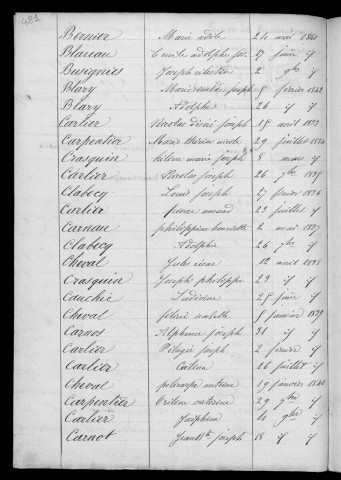 421
Bernier Marie adèle 24 mai 1841
Blareau Emile adolphe 27 juin y
Busignies Joseph célestin 2 9bre y
Blary Marie joseph 5 février 1842
Blary Adolphe 26 y y
Carlier Nicolas désiré joseph 15 avril 1833
Carpentier Marie thérèse 29 juillet 1834
Crasquin hélène marie joseph 8 mars y
Carlier Nicolas joseph 26 9bre 1835
Clabecq Louis joseph 27 février 1836
Carlier pierre amand 23 juillet y
Carnau philippine henriette 2 mai 1837
Clabecq Adolphe 26 9bre y
Cheval Jules césar 12 avril 1838
Crasquin Joseph philippe 23 y y
Cauchie Ludivine 25 juin y
Cheval 5 janvier 1839
Carnos Alphonse joseph 31 y y
Carlier Pélagie joseph 2 février y
Carlier Catien 26 juillet y
Cheval polycarpe antoine 19 janvier 1840
Carpentier victorine 29 9bre y
Carlier Joséphine 11 9bre y
Carnot Jean Bte joseph 18 y y